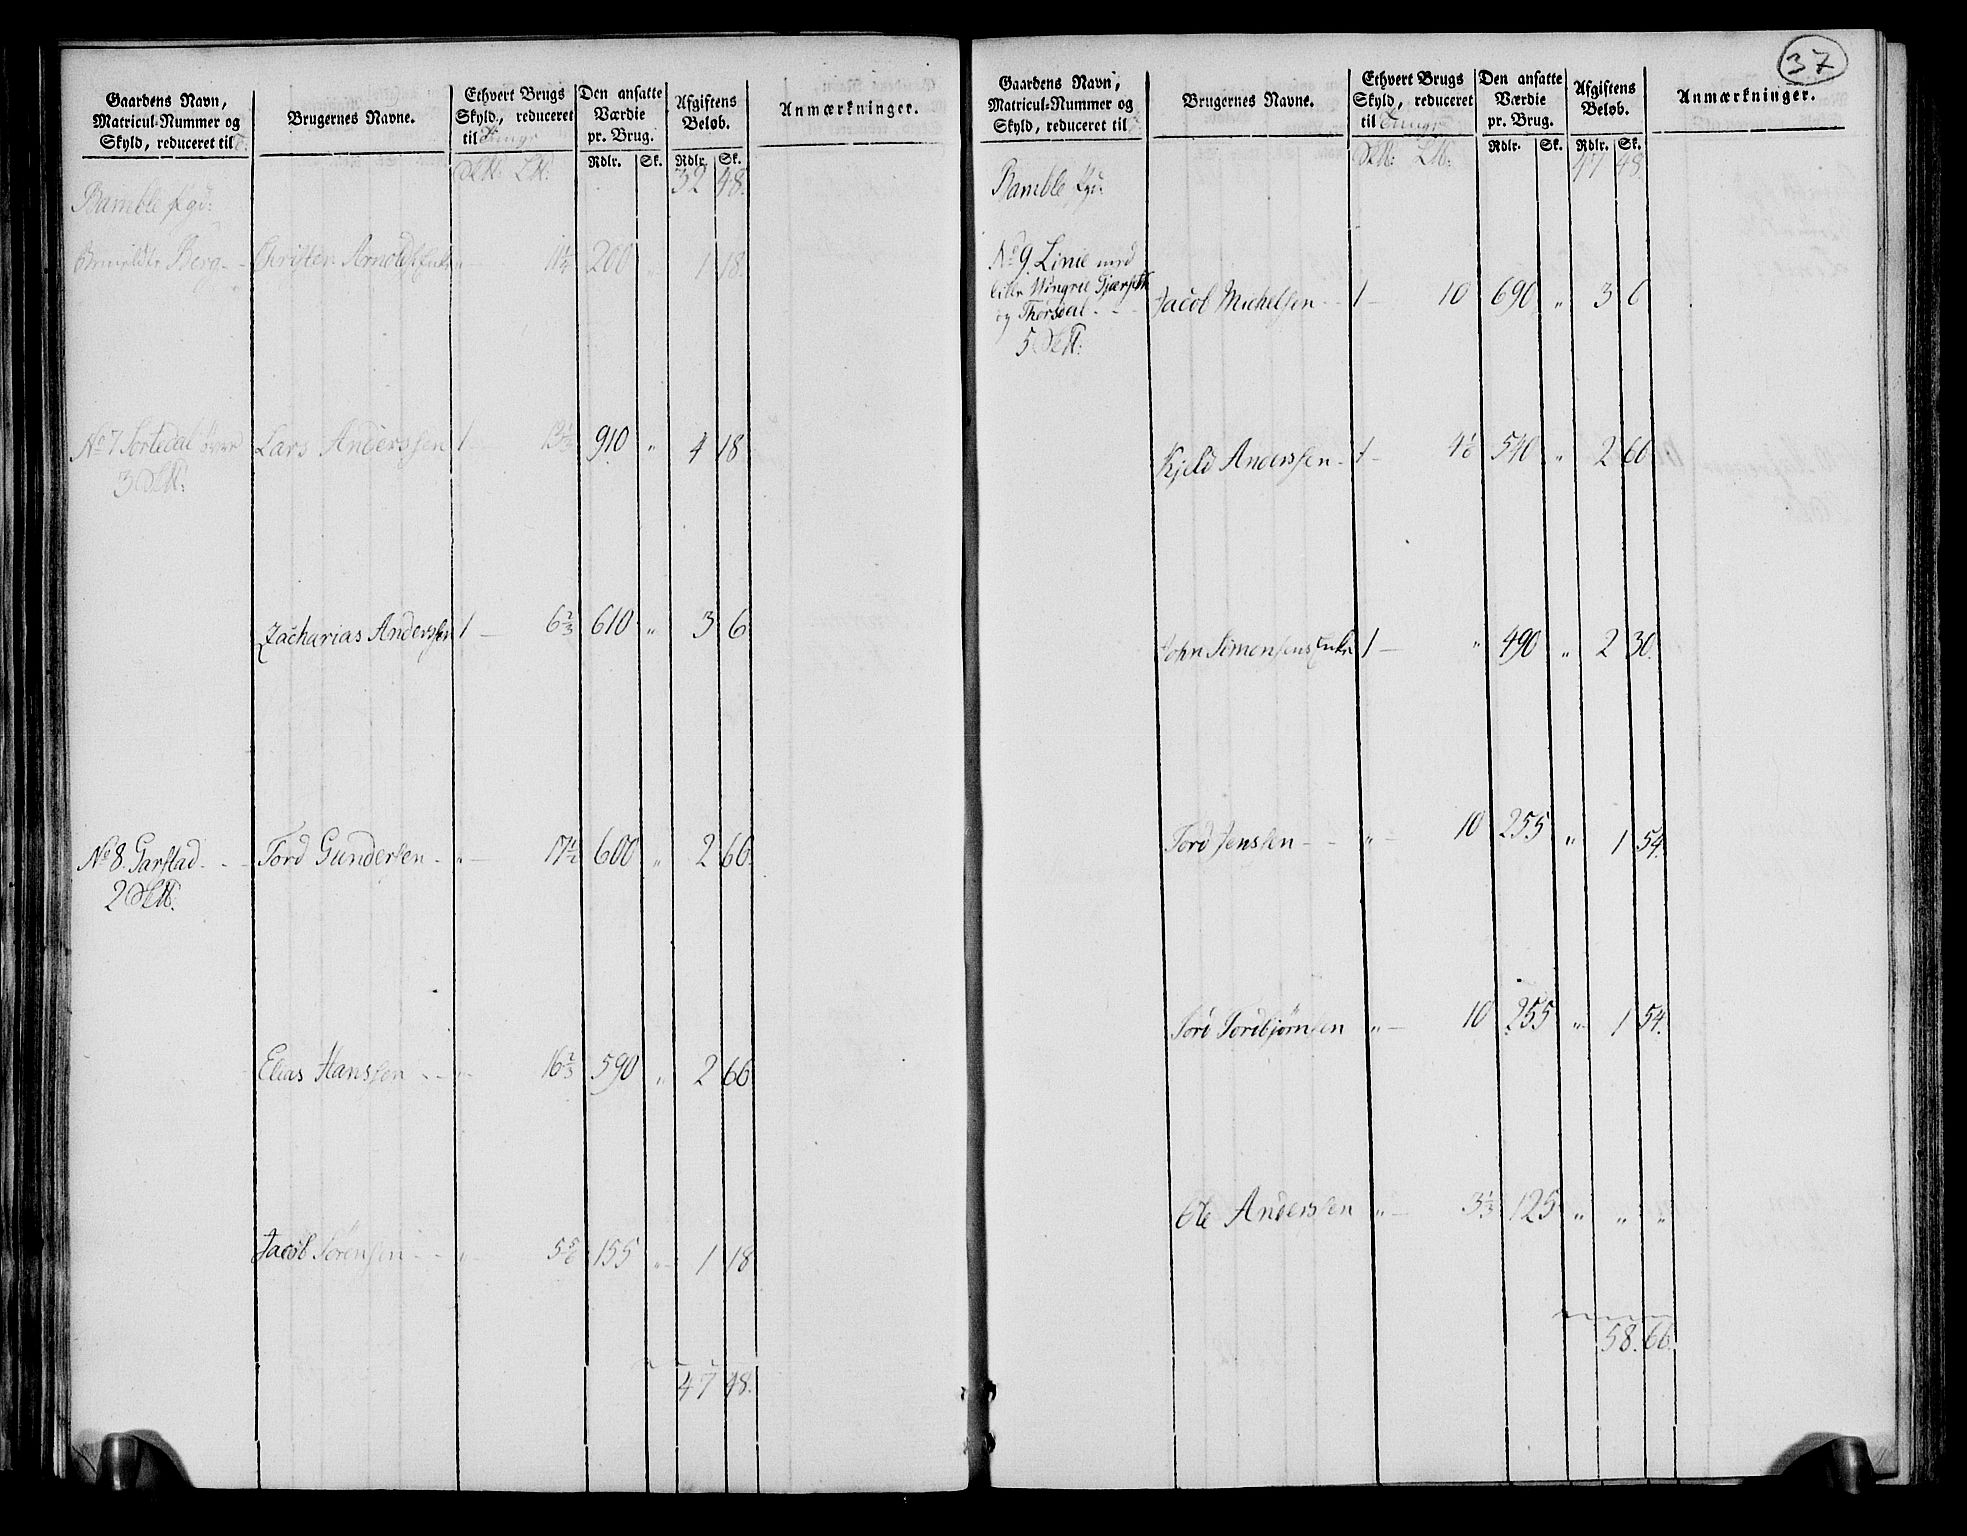 37
Gaardens Navn, Matricul-Nummer og Skyld, reduceret til
Brugernes Navne.
Ethvert Brugs Skyld, reduceret til Tunge
Den ansatte Værdie pr. Brug.
Afgiftens Beløb.
Anmærkninger.
Rdlr. Sk. Rdlr. Sk.
32 48.
Bamble
Berg - Christen 11 1/4 200 " 1 18.
No 7 Sortedal øvre Lars Anderssen 1 - 13 1/3 910 " 4 18
3
Zacharias Anderssen 1 - 6 2/3 610 " 3 6
No 8. Garstad - - Tord Gundersen - " - 17 1/2 600 " 2 66.
2
Elias Hanssen - - " 16 2/3 590 " 2 66
Jacob Sørensen - - " 5 5/6 155 " 1 18
47 48.
Gaardens Navn, Matricul-Nummer og Skyld, reduceret til
Brugernes Navne.
Ethvert Brugs Skyld, reduceret til Tunge
Den ansatte Værdie pr. Brug.
Afgiftens Beløb.
Anmærkninger.
Rdlr. Sk. Rdlr. Sk.
47 48.
Bamble
No 9. Linie med
lille
og Thorsdal - - Jacob Michelsen - - 1 - 10 690 " 3 6
5
Kjeld Anderssen - 1 - 540 " 2 66.
John Simonsens Enke 1 - " 490 " 2 30.
Tord Jenssen - - " - 10 255 " 1 54.
Tord Tordbjørnsen " - 10 255 " 1 54.
Ole Anderssen " - 3 1/3 125 " " "
58. 66.